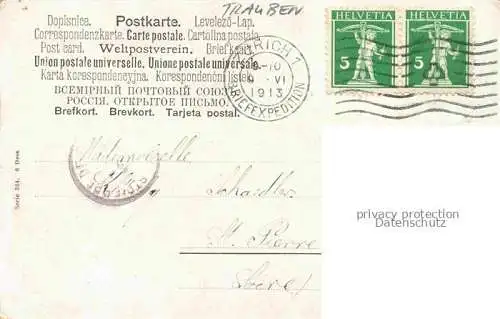 TRAUBEN
Dopisnice. Postkarte. Levelező-Lap.
Correspondenzkarte. Carte postale. Cartolina postale.
Post card. Weltpostverein. Briefkaart.
Union postale universelle. Unione postale universale.
Karta korespondencyjna. Korespondenční listek.
ВСЕМІРНЫЙ ПОЧТОВЫЙ СОЮЗ
РОССІЯ. ОТКРЫТОЕ ПИСЬМО.
Brefkort. Brevkort. Tarjeta postal.
ZÜRICH 1
VI
1913
BRIEFEXPEDITION
HELVETIA HELVETIA
5 5
Mademoiselle
St. Pierre
(Isère)
Serie 364. 6 Dess
privacy protection
Datenschutz